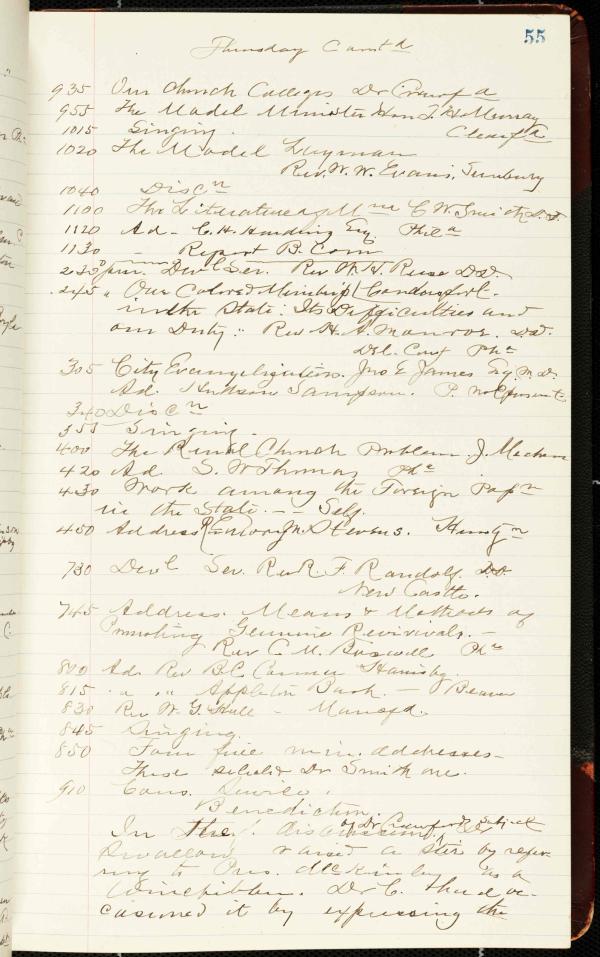 55
Thursday Cont'd
935 Our Church Colleges Dr Crawf'd
955 The Model Minister Hon T. H. Murray
Clearf'd
1015 Singing.
1020 The Model Layman
Rev. W. W. Evans, Sunbury
1040 Disc'n
1100 The Literature of M'm C. W. Smith D.D.
1120 Ad - C. H. Harding Esq. Phil'a
1130 - Report B. Com
235 Dev'l Ser. Rev W. H. D.D.
245 " Our Colored Minist
in the State: Its Difficulties and
our Duty." Rev H. A. Monroe. D.D.
Del. Conf Ph'a
305 City Evangelization. Jno E James Esq M.D.
Ad. Hudson Sampson. P. not present
340 Disc'n
355 Singing.
400 The Rural Church Problem J.
420 Ad S. W Thomas Ph'a
430 Work among the Foreign Pop'n
in the State. -- Self.
450 Address Emory M. Stevens. Hunt'gn
730 Dev'l Ser. Rev R. F. Randolf. D.D.
New Castle.
745 Address. Means & Methods of
Promoting Genuine Revivals. -
Rev C. M. Boswell Ph'a
800 Ad. Rev B. C. Conner Harrisbg.
815 " " Appleton Bash. - Beaver
830 Rev W. G. - Mansf'd.
845 Singing.
850 Four five min. addresses -
These Dr Smith one.
910 Cons. Service.
Benediction.
In the discussion of Dr Crawford's subject
Swallow raised a stir by refer-
ring to Pres. McKinley as a
winebibber. Dr C. had oc-
casioned it by expressing the